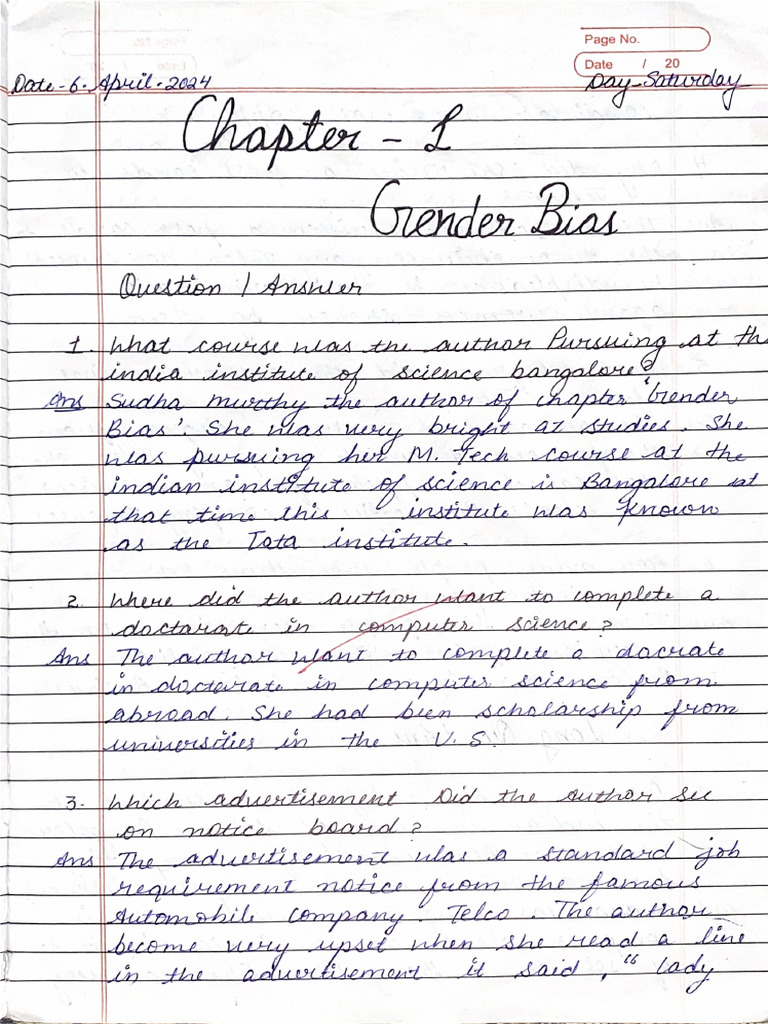 Page No.
Date / 20
Date - 6. April. 2024 Day - Saturday
Chapter - 1
Gender Bias
Question / Answer
1. What course was the author Pursuing at th
india institute of science bangalore?
Ans Sudha murthy the author of chapter 'Gender
Bias'. She was very bright at studies. She
was pursuing her M. Tech course at the
indian institute of science is Bangalore at
that time this institute was known
as the Tata institute.
2. Where did the author want to complete a
doctarate in computer science?
Ans The author want to complete a docrate
in doctarate in computer science from
abroad. She had been scholarship from
universities in the U.S.
3. Which advertisement Did the Author see
on notice board?
Ans The advertisement was a standard job
requirement notice from the famous
Automobile company. Telco. The author
become very upset when she read a line
in the advertisement it said, "lady